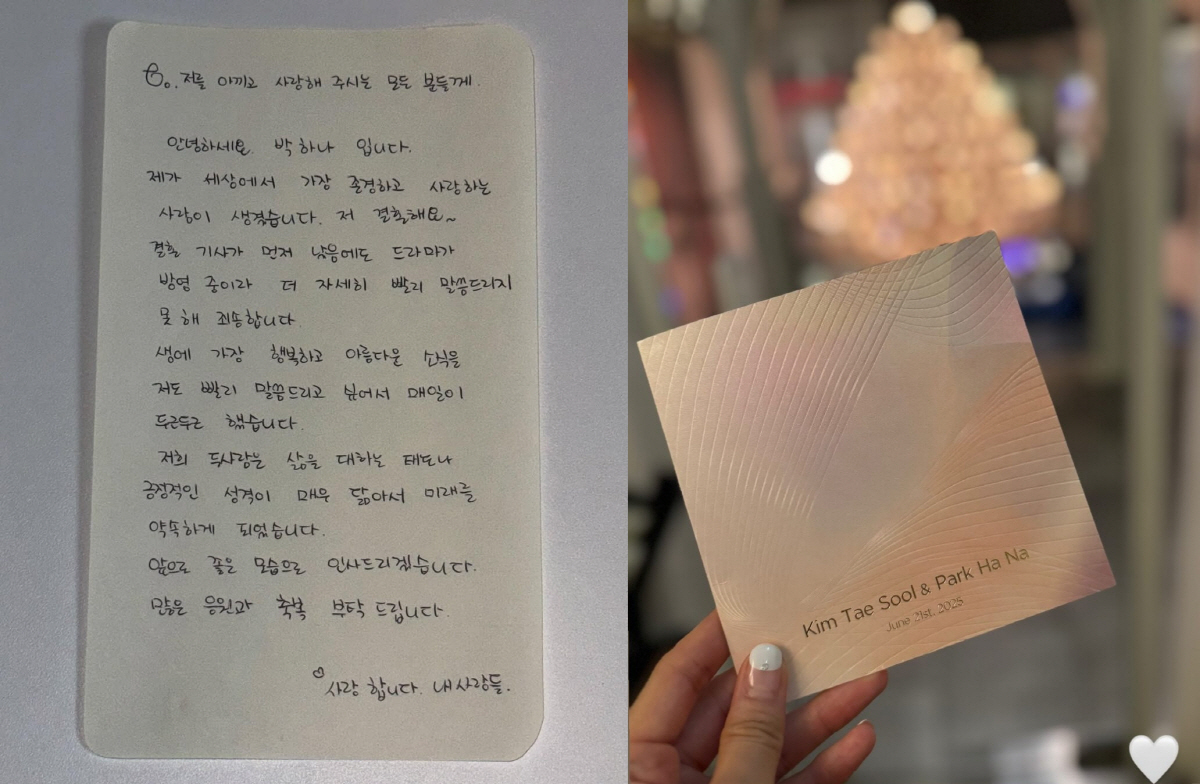 저를 아끼고 사랑해 주시는 모든 분들께.
안녕하세요. 박하나 입니다.
제가 세상에서 가장 존경하고 사랑하는
사람이 생겼습니다. 저 결혼해요~
결혼 기사가 먼저 났음에도 드라마가
방영 중이라 더 자세히 빨리 말씀드리지
못 해 죄송합니다
생에 가장 행복하고 아름다운 소식을
저도 빨리 말씀드리고 싶어서 매일이
두근두근 했습니다.
저희 두사람은 삶을 대하는 태도나
긍정적인 성격이 매우 닮아서 미래를
약속하게 되었습니다.
앞으로 좋은 모습으로 인사드리겠습니다.
많은 응원과 축복 부탁 드립니다.
사랑 합니다. 내사람들.
Kim Tae Sool & Park Ha Na
June 21st, 2025